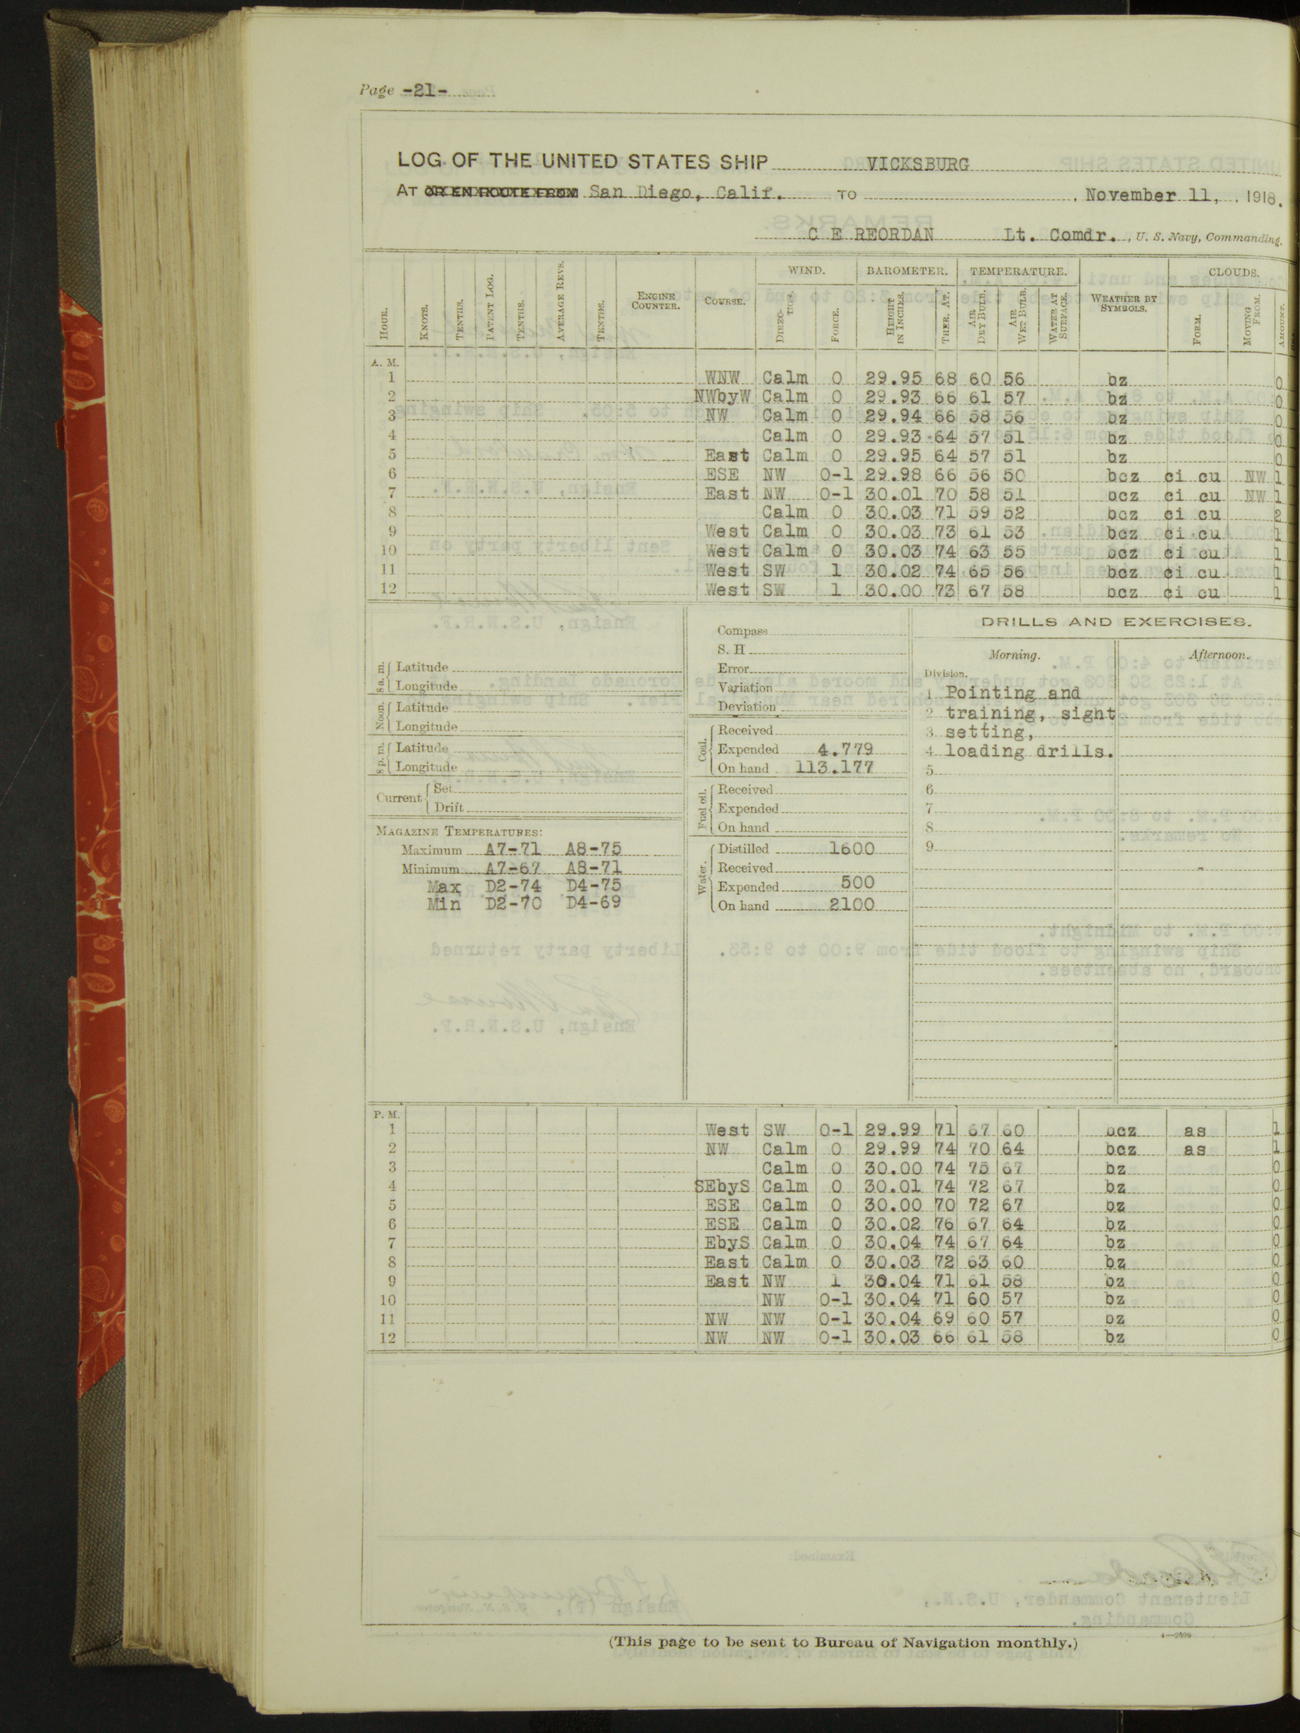 Page -21-
LOG OF THE UNITED STATES SHIP VICKSBURG
AT OR EN ROUTE FROM San Diego, Calif. TO , November 11, , 1918.
C E REORDAN Lt. Comdr. , U. S. Navy, Commanding.
HOUR. KNOTS. TENTHS. PATENT LOG. TENTHS. AVERAGE REVS. TENTHS. ENGINE COUNTER. COURSE. WIND. DIREC-TION. FORCE. BAROMETER. HEIGHT IN INCHES. THER. AT. TEMPERATURE. AIR DRY BULB. AIR WET BULB. WATER AT SURFACE. WEATHER BY SYMBOLS. CLOUDS. FORM. MOVING FROM. AMOUNT.
A. M.
1 WNW Calm 0 29.95 68 60 56 bz 0
2 NWbyW Calm 0 29.93 66 61 57 bz 0
3 NW Calm 0 29.94 66 58 56 bz 0
4 Calm 0 29.93 64 57 51 bz 0
5 East Calm 0 29.95 64 57 51 bz 0
6 ESE NW 0-1 29.98 66 56 50 bcz ci cu NW 1
7 East NW 0-1 30.01 70 58 51 bcz ci cu NW 1
8 Calm 0 30.03 71 59 52 bcz ci cu 2
9 West Calm 0 30.03 73 61 53 bcz ci cu 1
10 West Calm 0 30.03 74 63 55 bcz ci cu 1
11 West SW 1 30.02 74 65 56 bcz ci cu 1
12 West SW 1 30.00 73 67 58 bcz ci cu 1
8 a. m. Latitude
Longitude
Noon. Latitude
Longitude
8 p. m. Latitude
Longitude
Current Set
Drift
MAGAZINE TEMPERATURES:
Maximum A7-71 A8-75
Minimum A7-67 A8-71
Max D2-74 D4-75
Min D2-70 D4-69
Compass
S. H
Error
Variation
Deviation
Coal. Received
Expended 4.779
On hand 113.177
Fuel oil. Received
Expended
On hand
Water. Distilled 1600
Received
Expended 500
On hand 2100
DRILLS AND EXERCISES.
Morning. Afternoon.
Division.
1 Pointing and
2 training, sight
3 setting,
4 loading drills.
5
6
7
8
9
P. M.
1 West SW 0-1 29.99 71 67 60 bcz as 1
2 NW Calm 0 29.99 74 70 64 bcz as 1
3 Calm 0 30.00 74 75 67 bz 0
4 SEbyS Calm 0 30.01 74 72 67 bz 0
5 ESE Calm 0 30.00 70 72 67 bz 0
6 ESE Calm 0 30.02 76 67 64 bz 0
7 EbyS Calm 0 30.04 74 67 64 bz 0
8 East Calm 0 30.03 72 63 60 bz 0
9 East NW 1 30.04 71 61 58 bz 0
10 NW 0-1 30.04 71 60 57 bz 0
11 NW NW 0-1 30.04 69 60 57 bz 0
12 NW NW 0-1 30.03 66 61 58 bz 0
(This page to be sent to Bureau of Navigation monthly.)